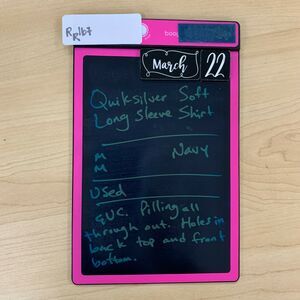 RR1b7
boog
March 22
Quiksilver Soft
Long Sleeve Shirt
M Navy
M
Used
GUC. Pilling all
through out. Holes in
back top and front
bottom.